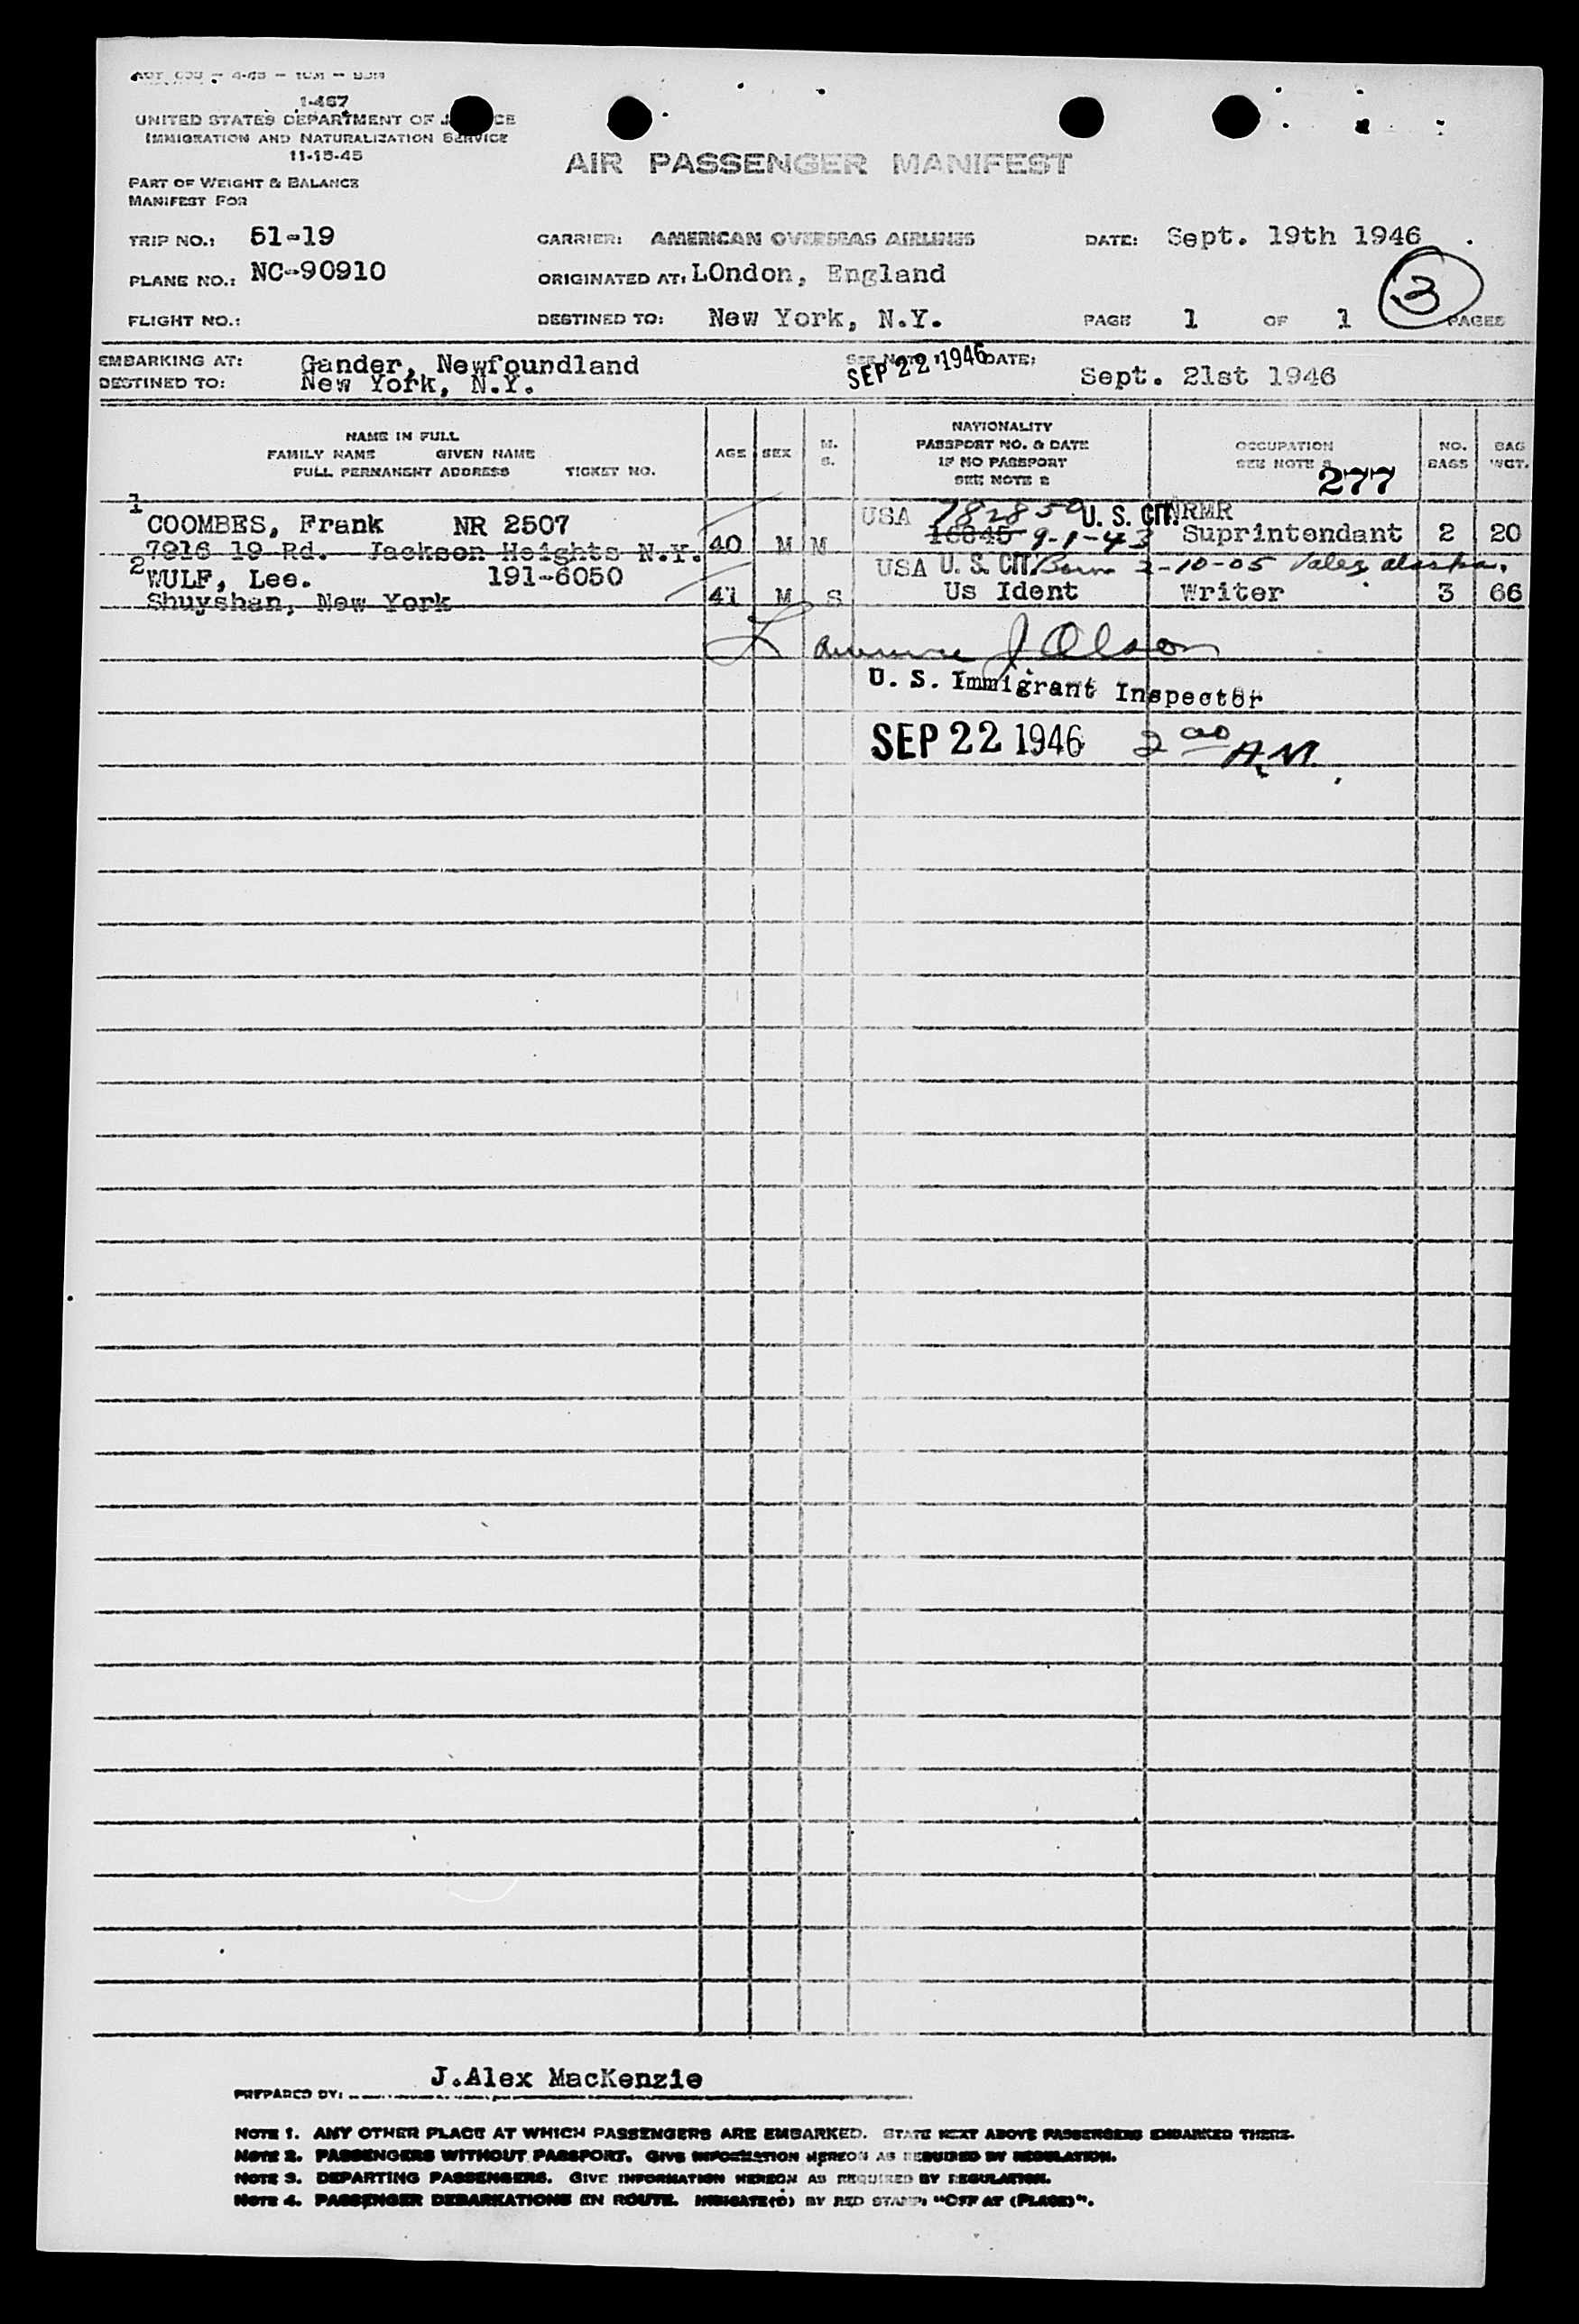 1-467
UNITED STATES DEPARTMENT OF J CE
IMMIGRATION AND NATURALIZATION SERVICE
11-15-45
AIR PASSENGER MANIFEST
PART OF WEIGHT & BALANCE
MANIFEST FOR
TRIP NO.: 51-19 CARRIER: AMERICAN OVERSEAS AIRLINES DATE: Sept. 19th 1946
PLANE NO.: NC-90910 ORIGINATED AT: LOndon, England
FLIGHT NO.: DESTINED TO: New York, N.Y. PAGE 1 OF 1 PAGES
3
EMBARKING AT: Gander, Newfoundland SEP 22 1946 DATE: Sept. 21st 1946
DESTINED TO: New York, N.Y.
NAME IN FULL
FAMILY NAME GIVEN NAME
FULL PERMANENT ADDRESS TICKET NO.
AGE SEX M. S.
NATIONALITY
PASSPORT NO. & DATE
IF NO PASSPORT
SEE NOTE 2
OCCUPATION
SEE NOTE
277
NO. BAGS
BAG WGT.
1 COOMBES, Frank NR 2507 USA 782859 U. S. CIT. NRMR
7216 19 Rd. Jackson Heights N.Y. 40 M M 16845 9-1-43 Suprintendant 2 20
2 WULF, Lee. 191-6050 USA U. S. CIT. Born 2-10-05 Valez Alaska.
Shuyshan, New York 41 M S Us Ident Writer 3 66
Lawrence J Olson
U. S. Immigrant Inspector
SEP 22 1946 2 00 A.M.
PREPARED BY: J.Alex MacKenzie
NOTE 1. ANY OTHER PLACE AT WHICH PASSENGERS ARE EMBARKED. STATE NEXT ABOVE PASSENGERS EMBARKED THERE.
NOTE 2. PASSENGERS WITHOUT PASSPORT. GIVE INFORMATION HEREON AS REQUIRED BY REGULATION.
NOTE 3. DEPARTING PASSENGERS. GIVE INFORMATION HEREON AS REQUIRED BY REGULATION.
NOTE 4. PASSENGER DEBARKATIONS EN ROUTE. INDICATE(D) BY RED STAMP: "OFF AT (PLACE)".